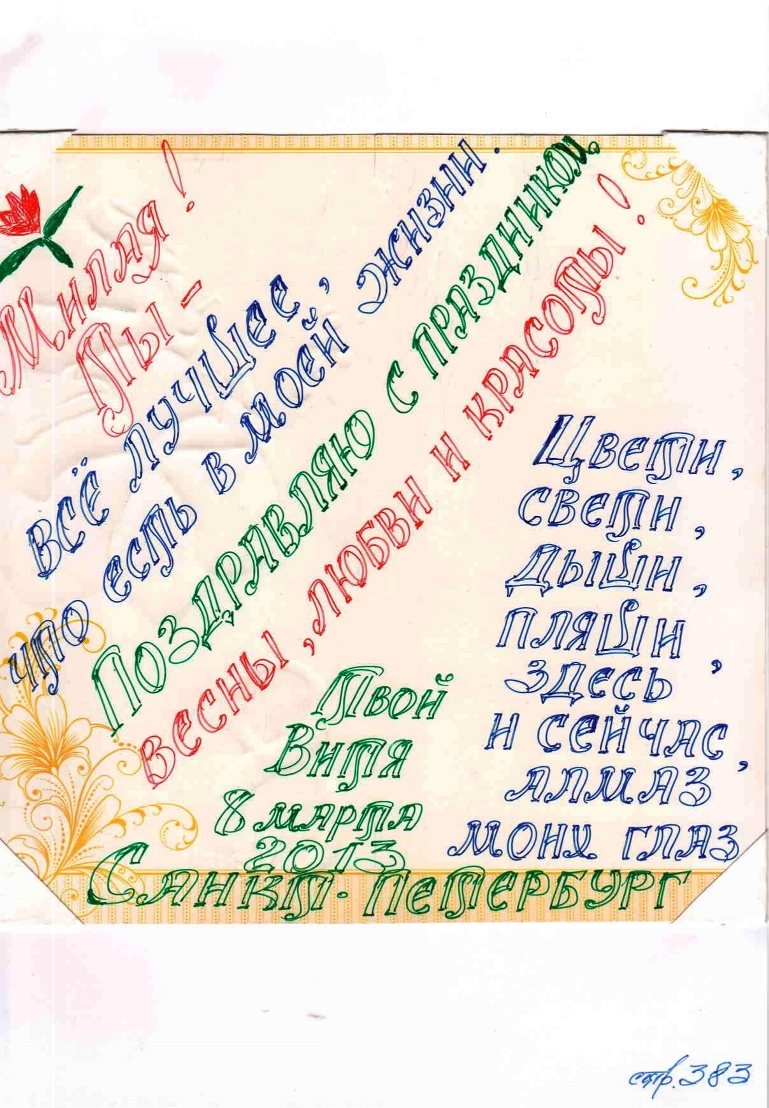 Милая!
Ты -
всё лучшее,
что есть в моей жизни.
Поздравляю с праздником
весны, любви и красоты!
Цвети,
свети,
дыши,
пляши,
здесь
и сейчас,
алмаз
моих глаз
Твой
Витя
8 марта
2013
Санкт-Петербург
стр. 383